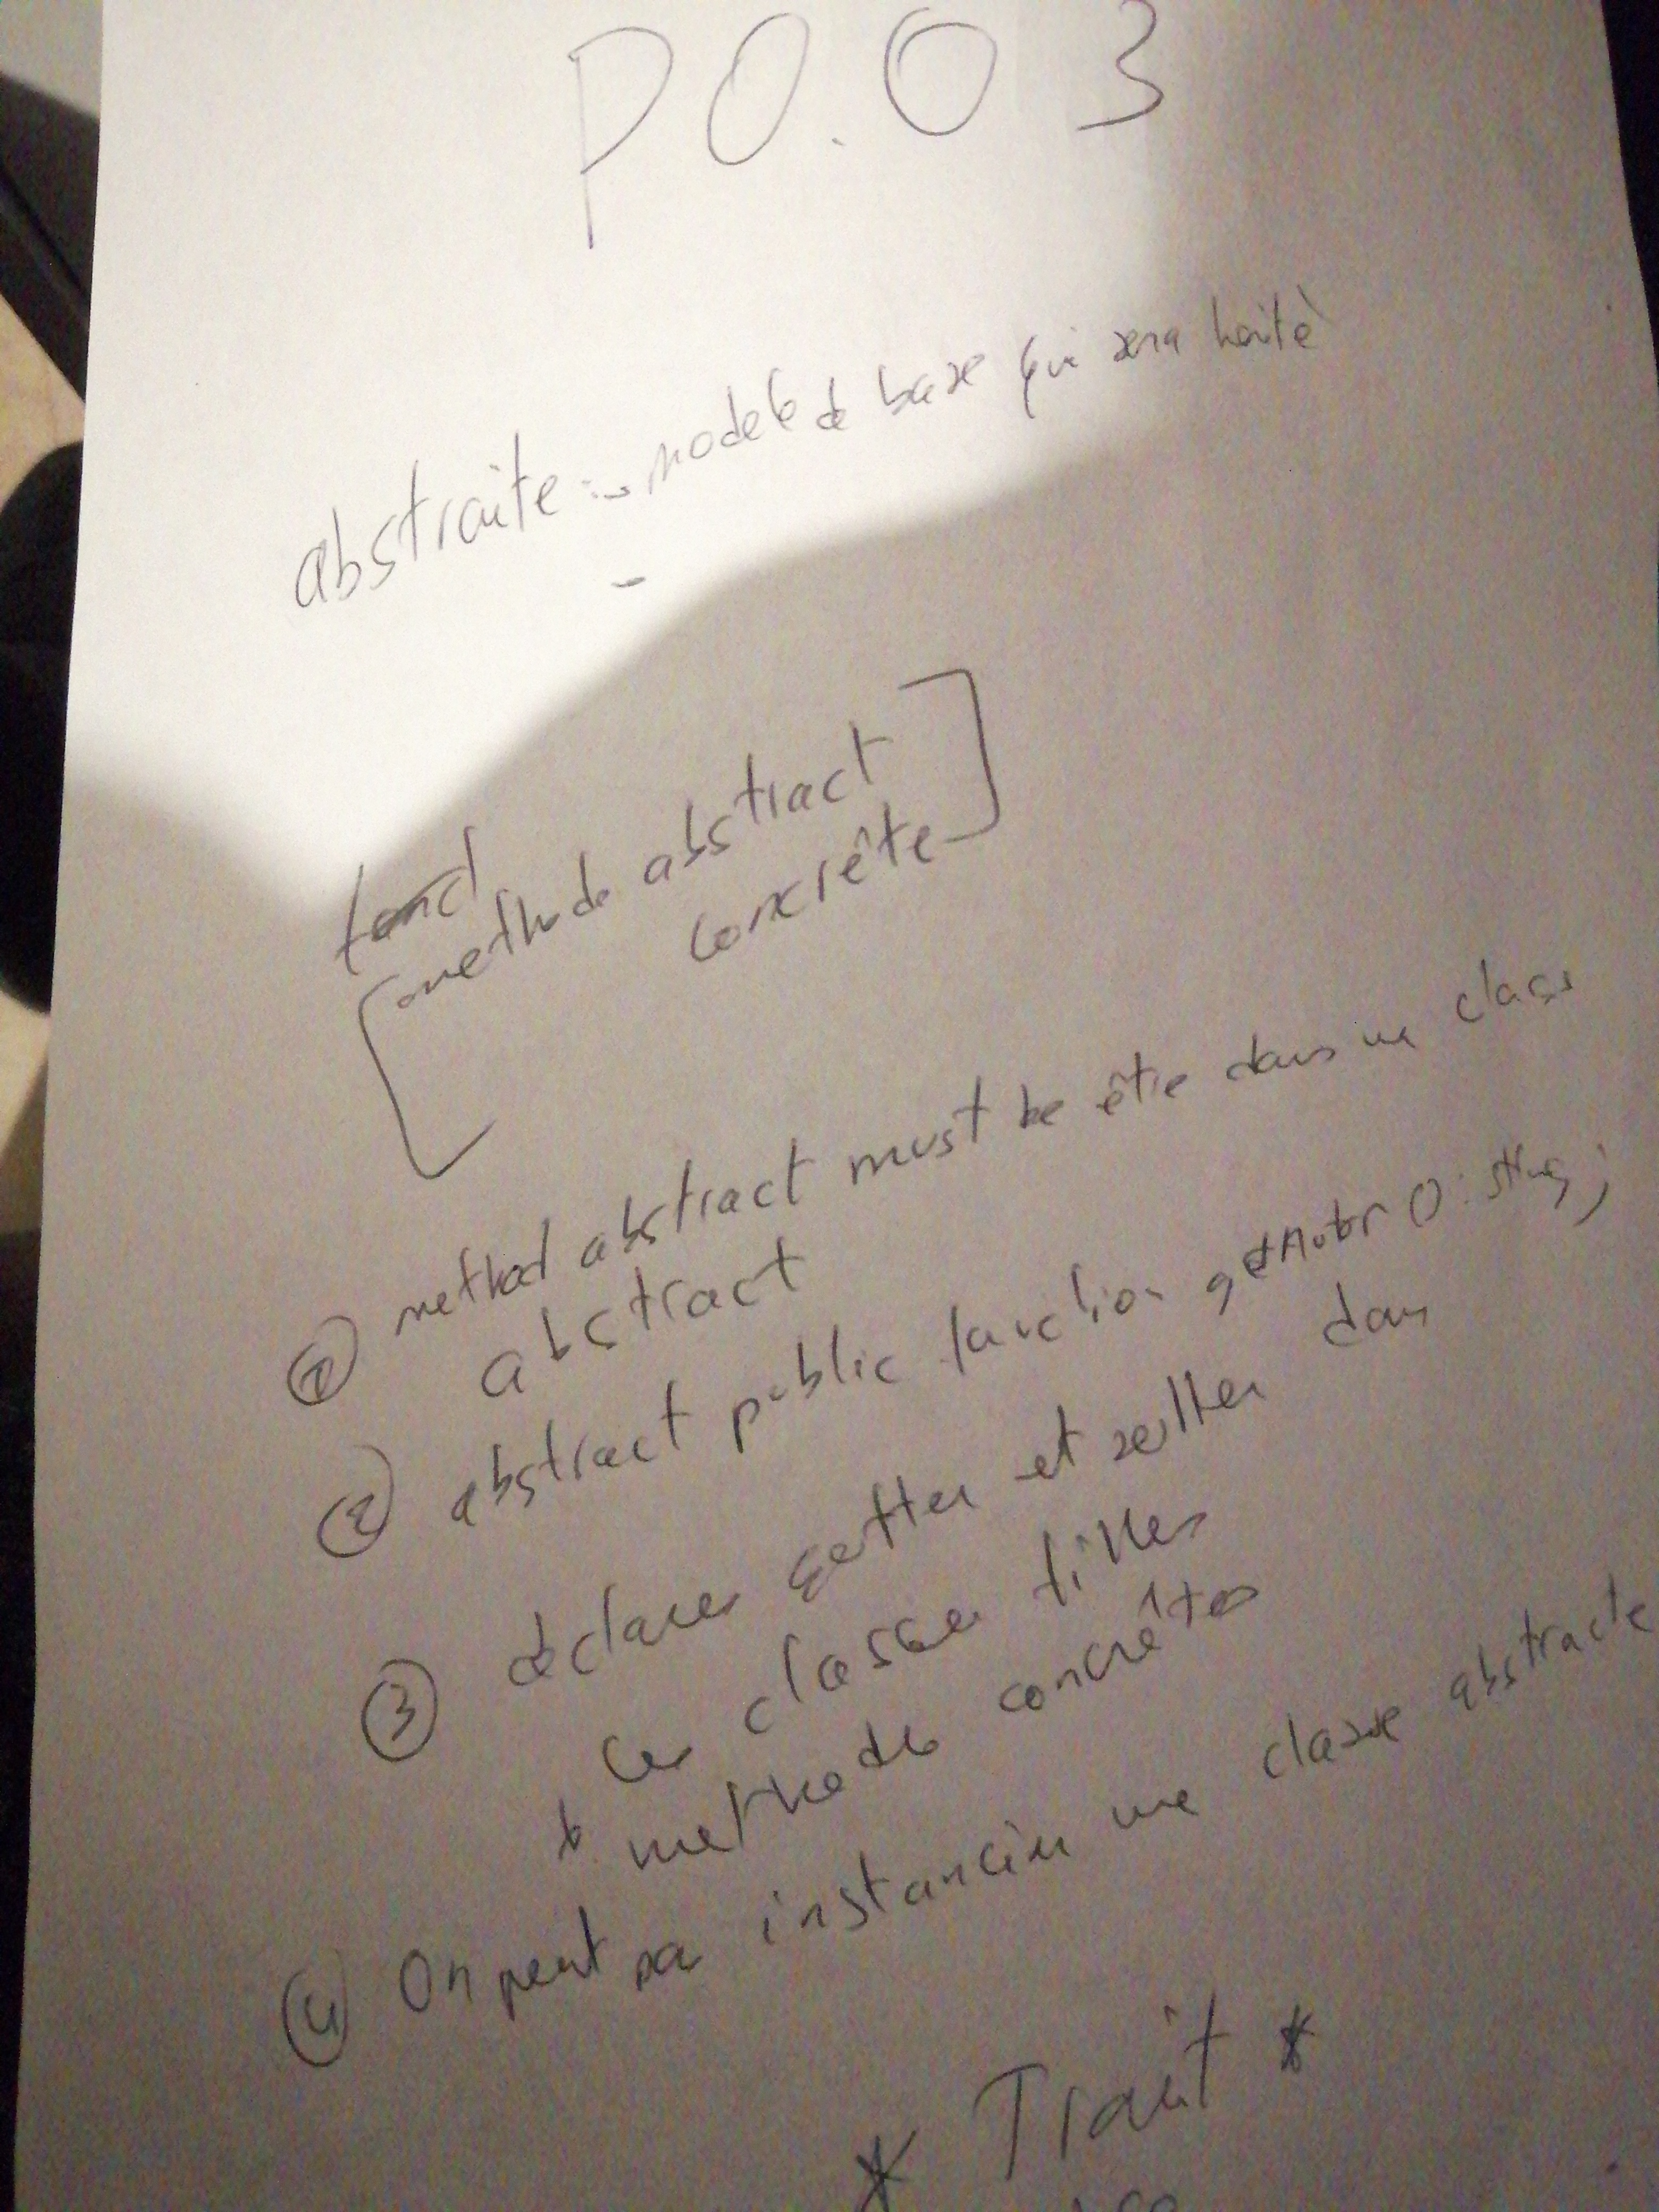 PO.O 3
abstraite : modele de base qui sera hérité
-
methode abstract
concrête
① method abstract must be être dans une class
abstract
② abstract public function getAutor() : string;
③ déclarer getter et setter dans
les classes filles
methode concrêtes
④ On peut pas instancier une classe abstracte
* Trait *